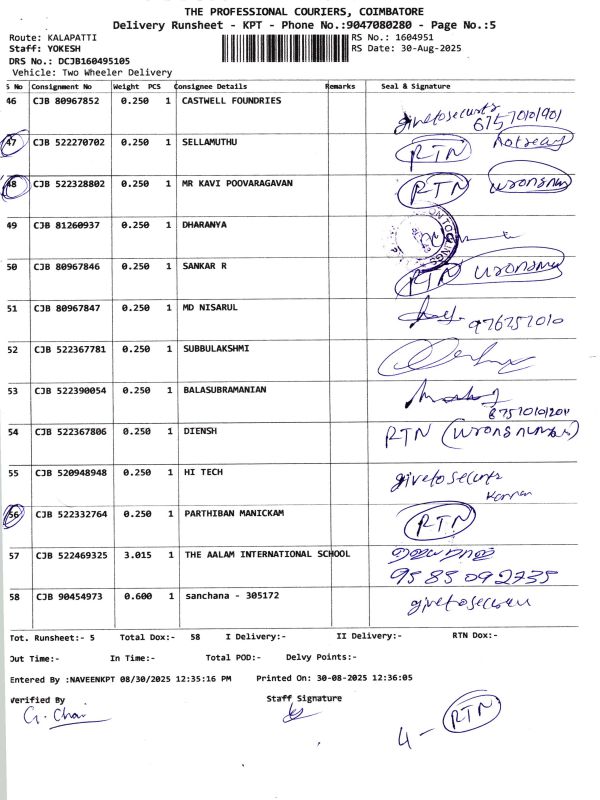 THE PROFESSIONAL COURIERS, COIMBATORE
Delivery Runsheet - KPT - Phone No.:9047080280 - Page No.:5
Route: KALAPATTI
Staff: YOKESH
DRS No.: DCJB160495105
Vehicle: Two Wheeler Delivery
RS No.: 1604951
RS Date: 30-Aug-2025
S No Consignment No Weight PCS Consignee Details Remarks Seal & Signature
46 CJB 80967852 0.250 1 CASTWELL FOUNDRIES
givetosecurity
47 CJB 522270702 0.250 1 SELLAMUTHU RTN
48 CJB 522328802 0.250 1 MR KAVI POOVARAGAVAN RTN
49 CJB 81260937 0.250 1 DHARANYA
50 CJB 80967846 0.250 1 SANKAR R RTN
51 CJB 80967847 0.250 1 MD NISARUL
52 CJB 522367781 0.250 1 SUBBULAKSHMI
53 CJB 522390054 0.250 1 BALASUBRAMANIAN
54 CJB 522367806 0.250 1 DIENSH RTN (wrong number)
55 CJB 520948948 0.250 1 HI TECH
56 CJB 522332764 0.250 1 PARTHIBAN MANICKAM RTN
57 CJB 522469325 3.015 1 THE AALAM INTERNATIONAL SCHOOL
95 83 092735
58 CJB 90454973 0.600 1 sanchana - 305172
Tot. Runsheet:- 5 Total Dox:- 58 I Delivery:- II Delivery:- RTN Dox:-
Out Time:- In Time:- Total POD:- Delvy Points:-
Entered By :NAVEENKPT 08/30/2025 12:35:16 PM Printed On: 30-08-2025 12:36:05
Verified By Staff Signature
4 - RTN